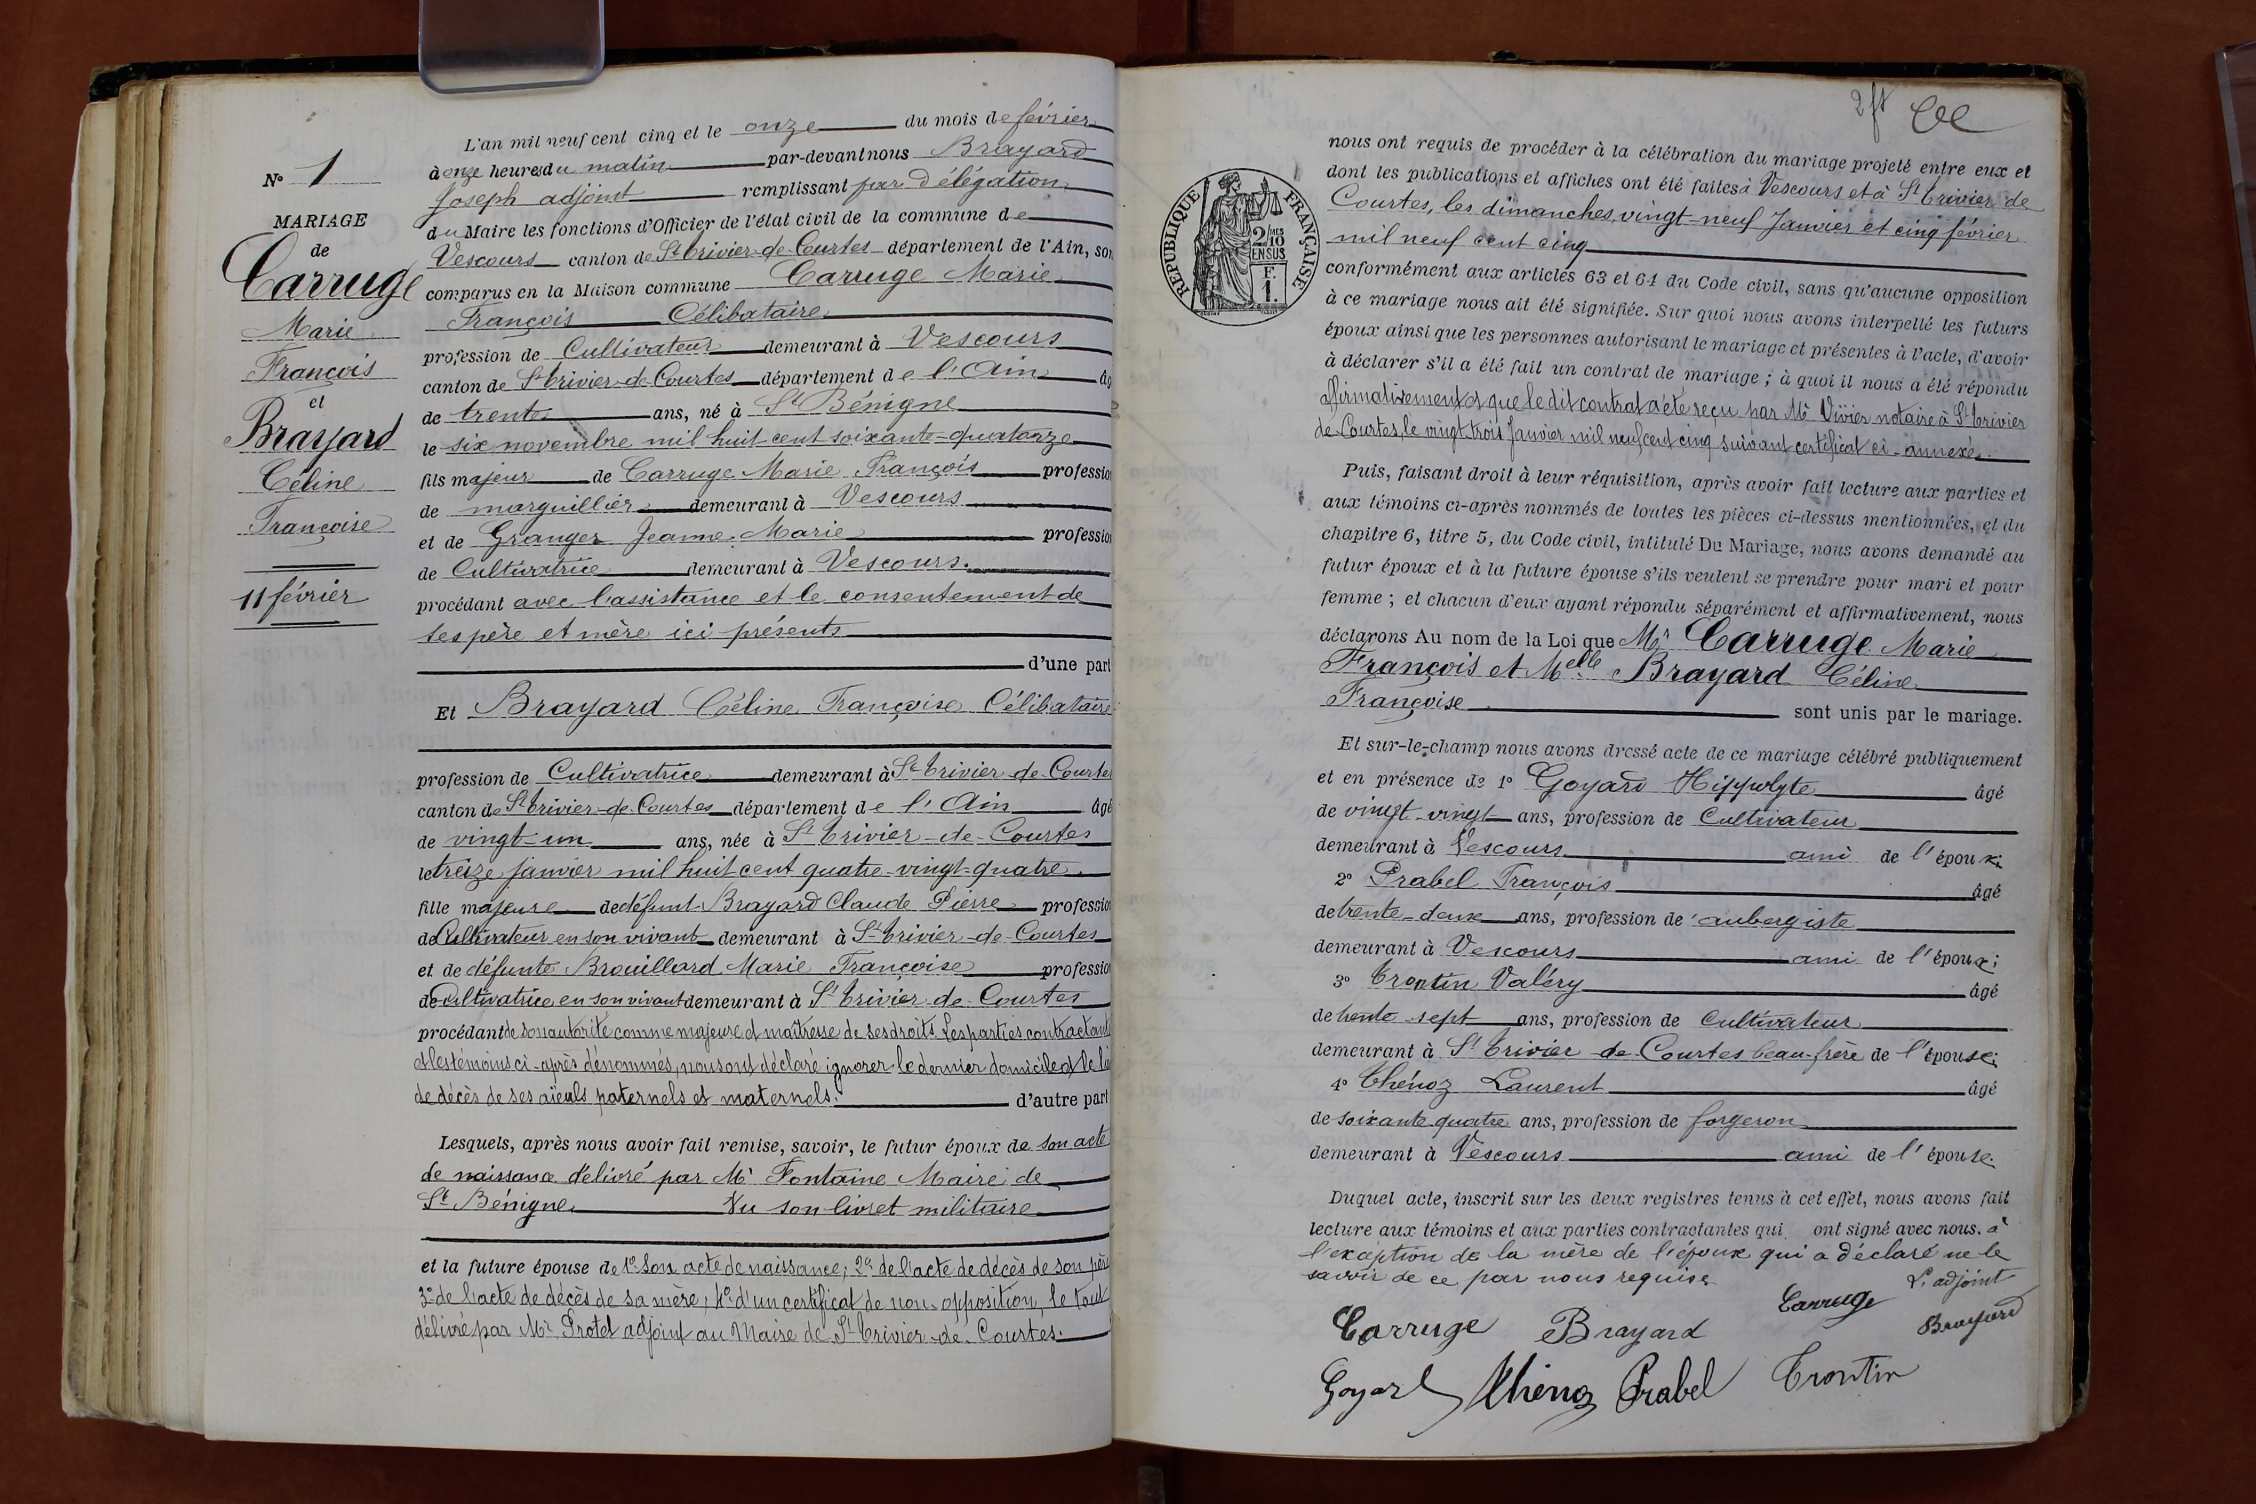 L'an mil neuf cent cinq et le onze du mois de février
N° 1
à onze heures du matin par-devant nous Brayard
Joseph adjoint remplissant par délégation
MARIAGE
du Maire les fonctions d'Officier de l'état civil de la commune de
de
Vescours canton de St Trivier-de-Courtes département de l'Ain, son
Carruge
comparus en la Maison commune Carruge Marie
Marie
François Célibataire
profession de Cultivateur demeurant à Vescours
François
canton de St Trivier-de-Courtes département de l'Ain âg
et
de trente ans, né à St Bénigne
Brayard
le six novembre mil huit cent soixante-quatorze
Céline
fils majeur de Carruge Marie François profession
de marguillier demeurant à Vescours
Françoise
et de Granger Jeanne Marie profession
de Cultivatrice demeurant à Vescours.
11 février
procédant avec l'assistance et le consentement de
ses père et mère ici présents
d'une part
Et Brayard Céline Françoise Célibataire
profession de Cultivatrice demeurant à St Trivier-de-Courtes
canton de St Trivier-de-Courtes département de l'Ain âgé
de vingt-un ans, née à St Trivier-de-Courtes
le treize janvier mil huit cent quatre-vingt-quatre
fille majeure de défunt Brayard Claude Pierre profession
de Cultivateur en son vivant demeurant à St Trivier-de-Courtes
et de défunte Brouillard Marie Françoise profession
de Cultivatrice en son vivant demeurant à St Trivier-de-Courtes
procédant de son autorité comme majeure et maîtresse de ses droits. Les parties contractant
et les témoins ci-après dénommés, nous ont déclaré ignorer le dernier domicile et le
de décès de ses aïeuls paternels et maternels. d'autre part
Lesquels, après nous avoir fait remise, savoir, le futur époux de son acte
de naissance délivré par Mr Fontaine Maire de
St Bénigne Vu son livret militaire
et la future épouse de 1° Son acte de naissance; 2° de l'acte de décès de son père
3° de l'acte de décès de sa mère; 4° d'un certificat de non-opposition, le tout
délivré par Mr Protet adjoint au Maire de St Trivier-de-Courtes.
2 ft
nous ont requis de procéder à la célébration du mariage projeté entre eux et
dont les publications et affiches ont été faites à Vescours et à St Trivier de
Courtes, les dimanches, vingt-neuf Janvier et cinq février
mil neuf cent cinq
RÉPUBLIQUE FRANÇAISE
2/10 MES
EN SUS
F.
1.
conformément aux articles 63 et 64 du Code civil, sans qu'aucune opposition
à ce mariage nous ait été signifiée. Sur quoi nous avons interpellé les futurs
époux ainsi que les personnes autorisant le mariage et présentes à l'acte, d'avoir
à déclarer s'il a été fait un contrat de mariage ; à quoi il nous a été répondu
affirmativement et que le dit contrat a été reçu par Me Vivier notaire à St Trivier
de-Courtes, le vingt trois Janvier mil neuf cent cinq suivant certificat ci-annexé.
Puis, faisant droit à leur réquisition, après avoir fait lecture aux parties et
aux témoins ci-après nommés de toutes les pièces ci-dessus mentionnées, et du
chapitre 6, titre 5, du Code civil, intitulé Du Mariage, nous avons demandé au
futur époux et à la future épouse s'ils veulent se prendre pour mari et pour
femme ; et chacun d'eux ayant répondu séparément et affirmativement, nous
déclarons Au nom de la Loi que Mr Carruge Marie
François et Melle Brayard Céline
Françoise sont unis par le mariage.
Et sur-le-champ nous avons dressé acte de ce mariage célébré publiquement
et en présence de 1° Goyard Hippolyte âgé
de vingt-vingt ans, profession de Cultivateur
demeurant à Vescours ami de l'époux;
2° Prabel François âgé
de trente-deux ans, profession de aubergiste
demeurant à Vescours ami de l'époux;
3° Trontin Valéry âgé
de trente sept ans, profession de Cultivateur
demeurant à St Trivier de-Courtes beau-frère de l'épouse;
4° Thénoz Laurent âgé
de soixante quatre ans, profession de forgeron
demeurant à Vescours ami de l'épouse.
Duquel acte, inscrit sur les deux registres tenus à cet effet, nous avons fait
lecture aux témoins et aux parties contractantes qui ont signé avec nous. à
l'exception de la mère de l'époux qui a déclaré ne le
savoir de ce par nous requise
L'adjoint
Carruge Brayard Carruge Brayard
Goyard Thénoz Prabel Trontin